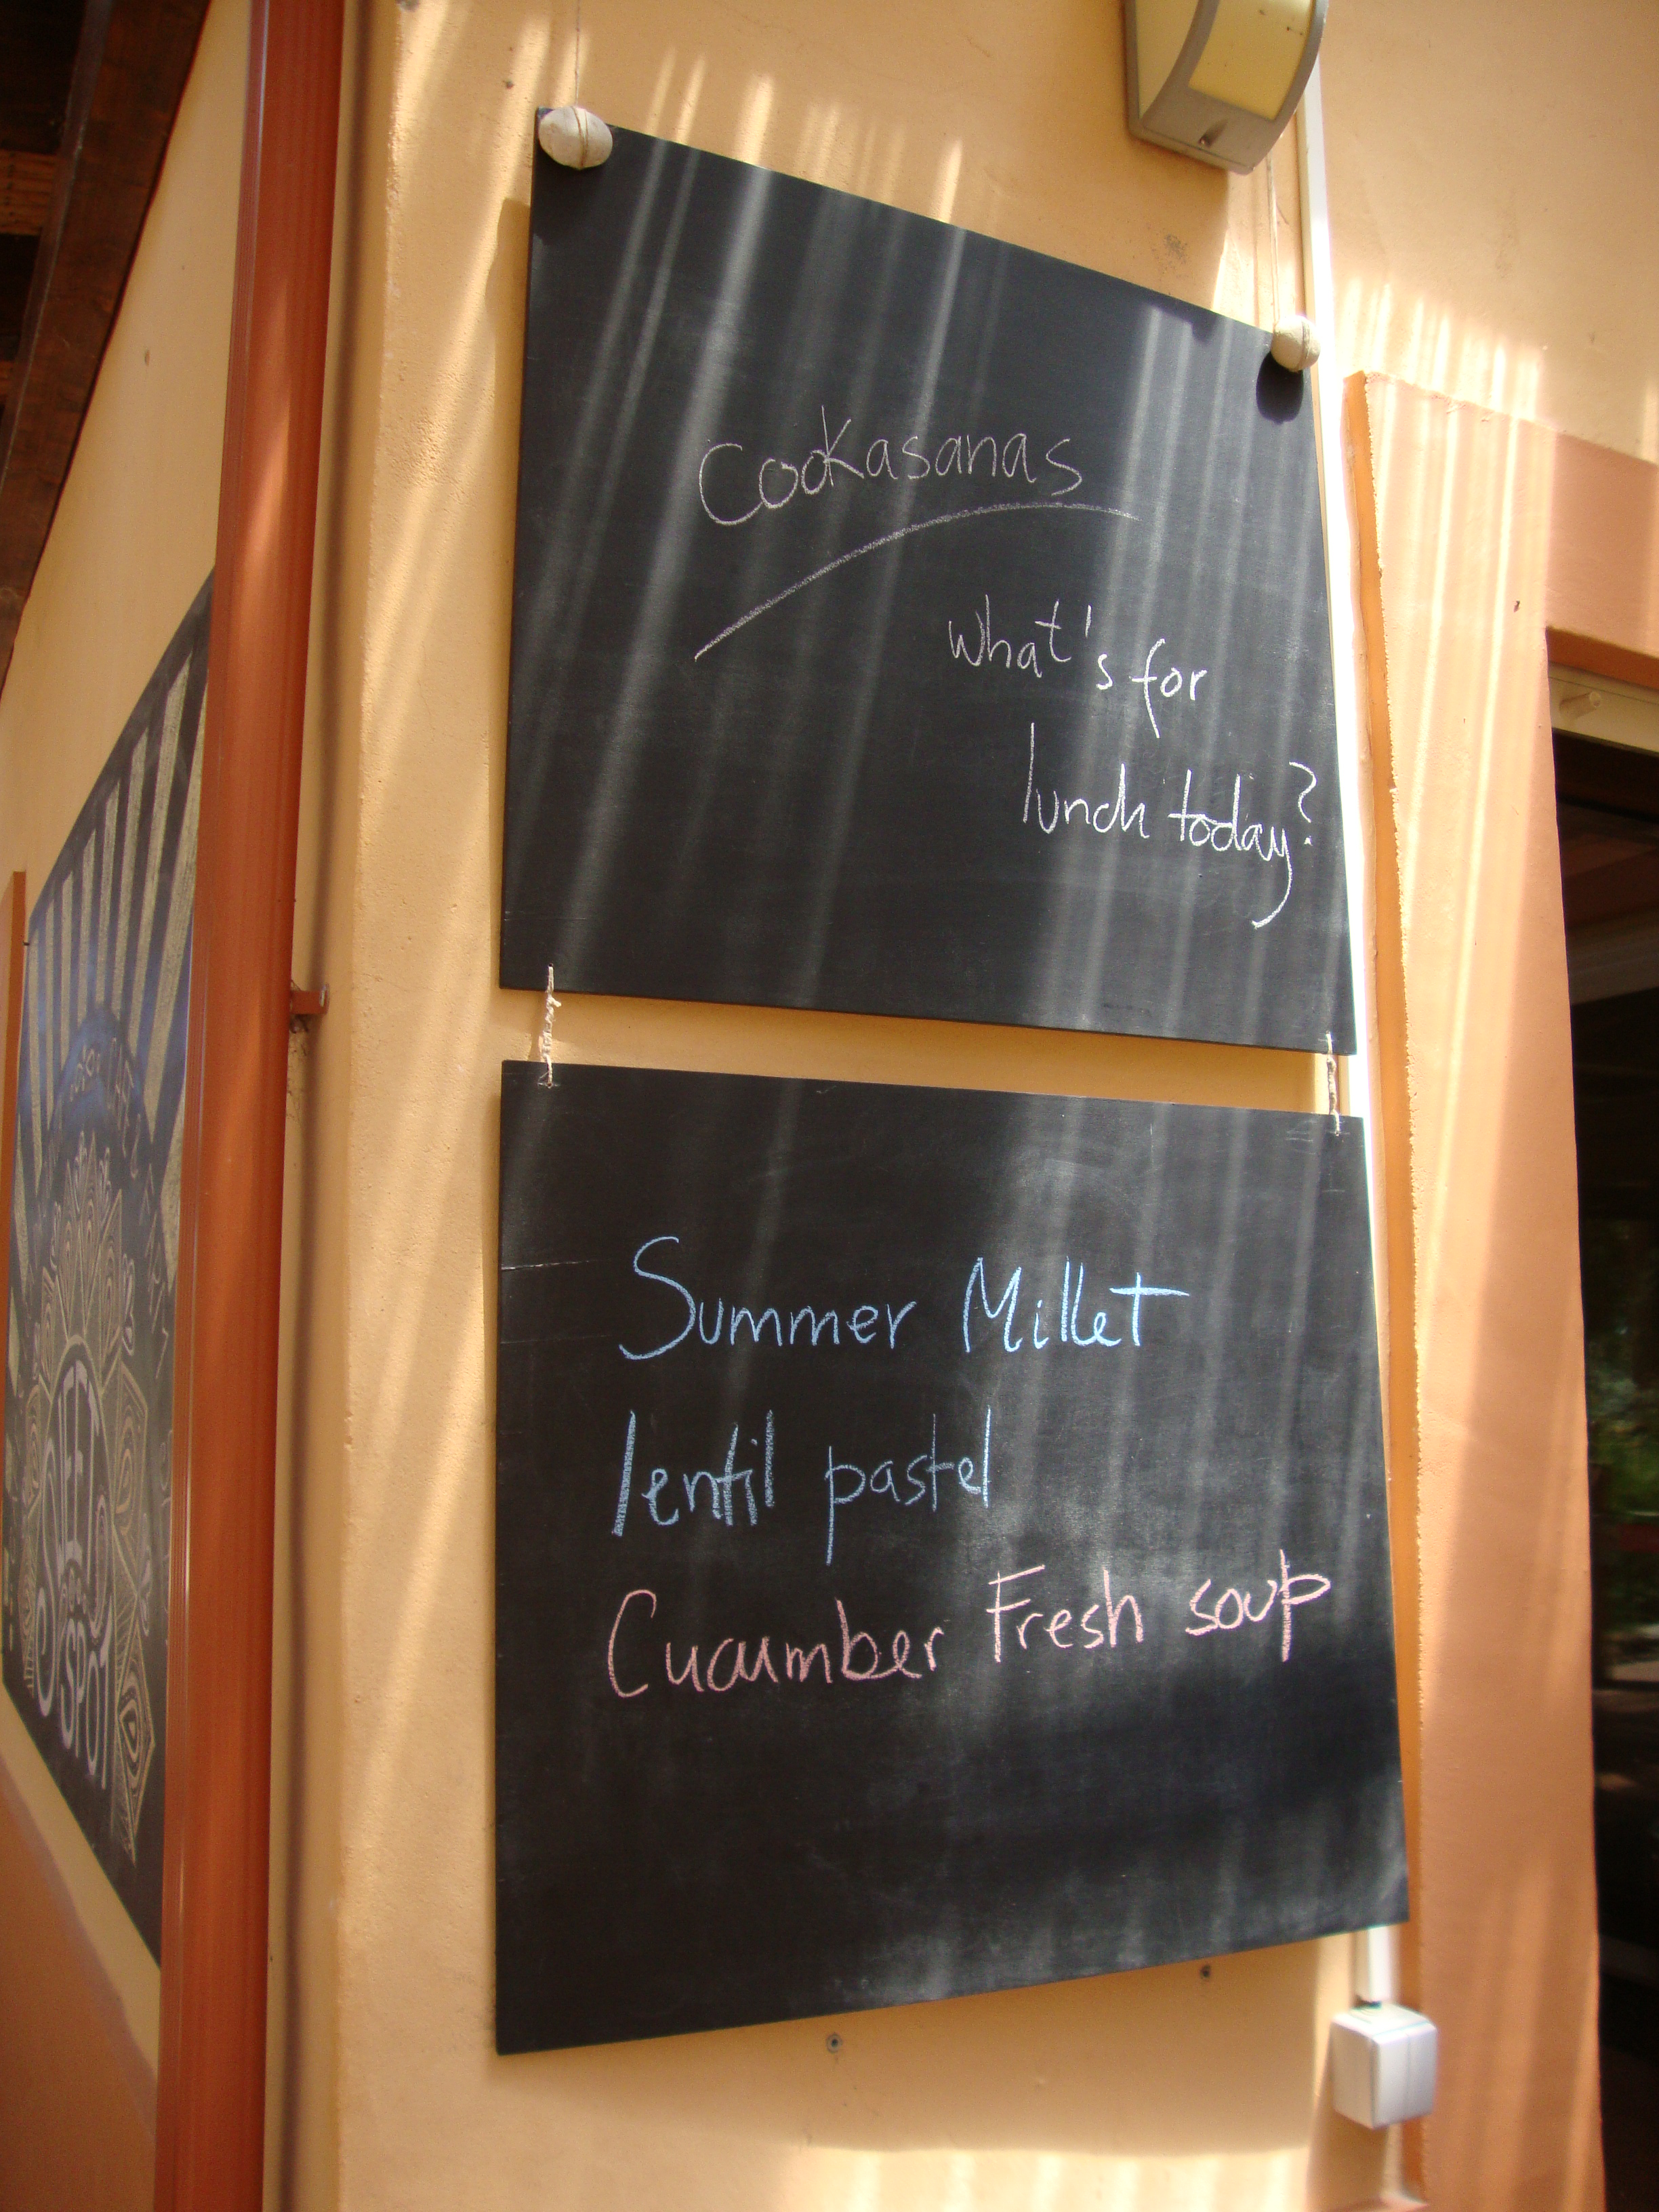 Cookasanas
What's for
lunch today?
Summer Millet
lentil pastel
Cucumber Fresh soup
SWEET
SPOT